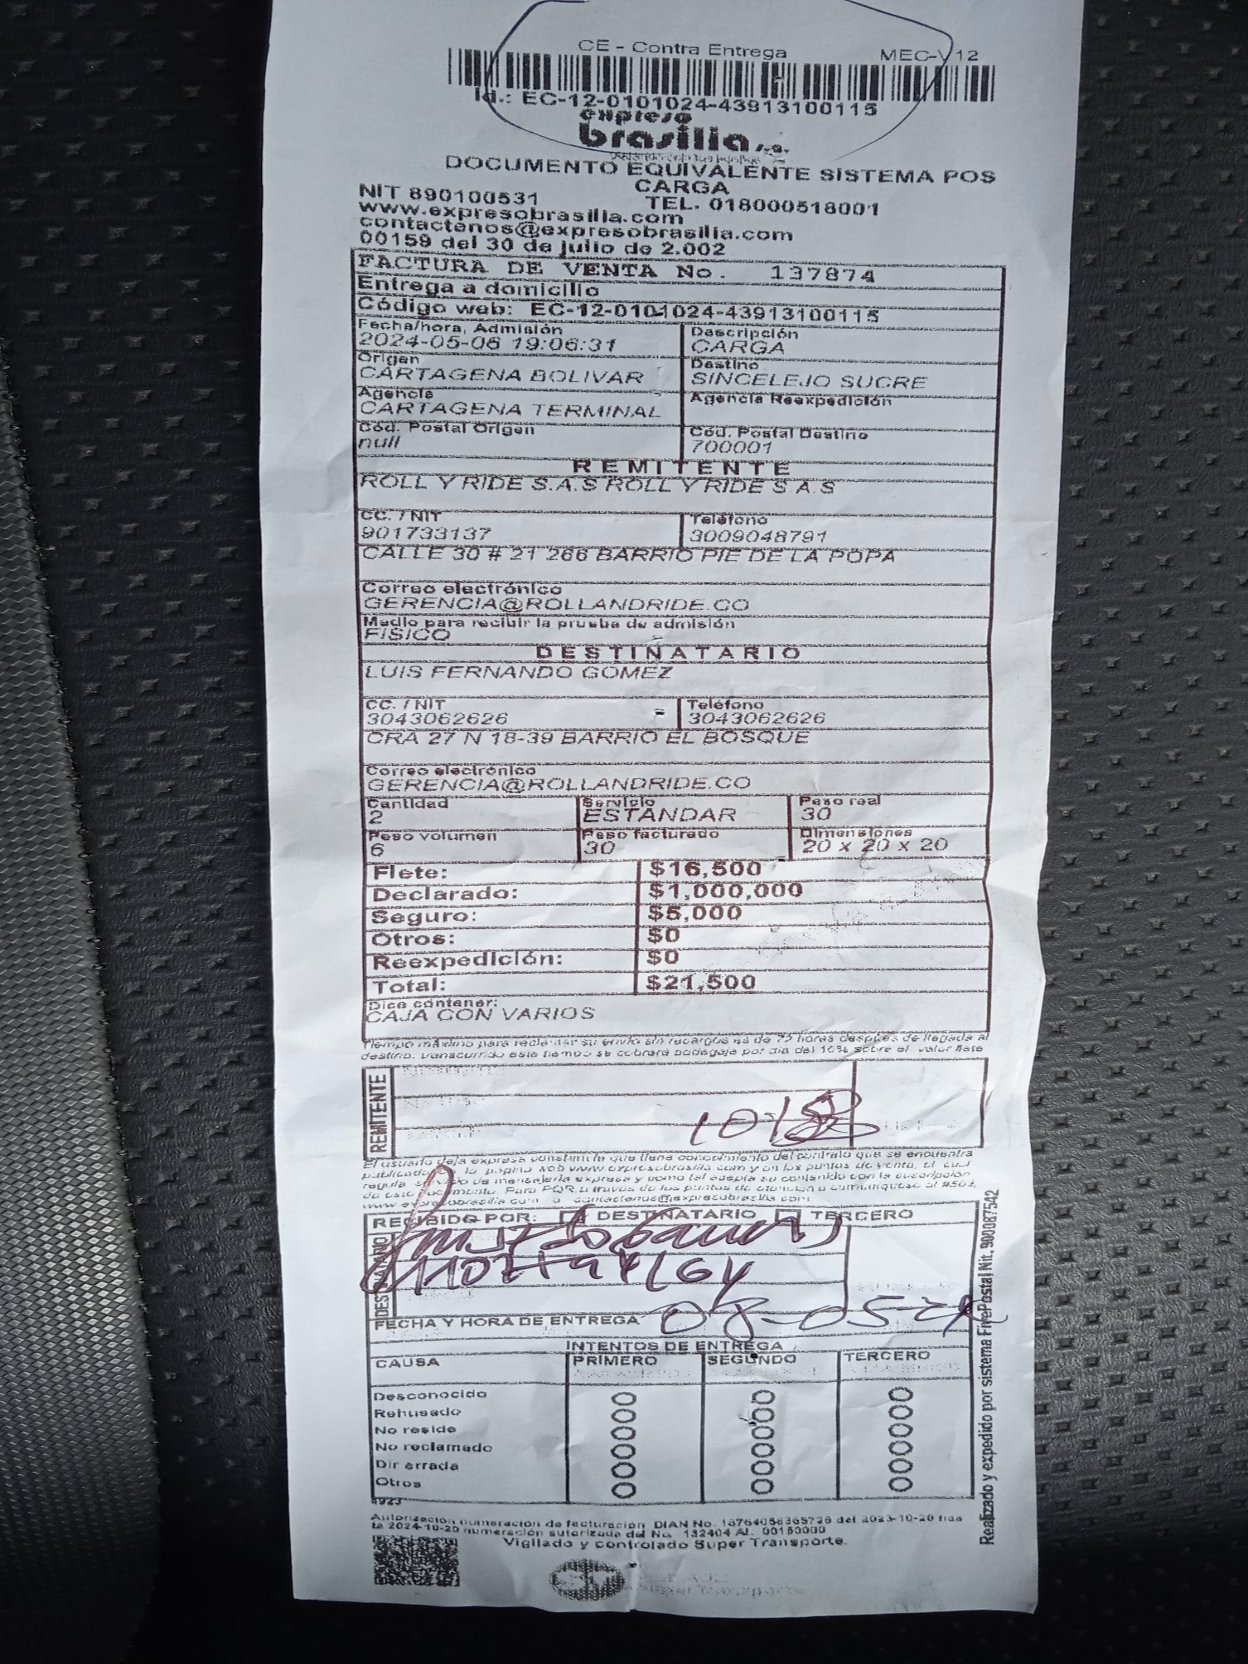 CE - Contra Entrega MEC-V12
Id.: EC-12-0101024-43913100115
expreso
brasilia s.a.
DOCUMENTO EQUIVALENTE SISTEMA POS
CARGA
NIT 890100531 TEL. 018000518001
www.expresobrasilia.com
contactenos@expresobrasilia.com
00159 del 30 de julio de 2.002
FACTURA DE VENTA No. 137874
Entrega a domicilio
Código web: EC-12-0101024-43913100115
Fecha/hora, Admisión Descripción
2024-05-06 19:06:31 CARGA
Origen Destino
CARTAGENA BOLIVAR SINCELEJO SUCRE
Agencia Agencia Reexpedición
CARTAGENA TERMINAL
Cód. Postal Origen Cód. Postal Destino
null 700001
REMITENTE
ROLL Y RIDE S.A.S ROLL Y RIDE S A S
CC. / NIT Teléfono
901733137 3009048791
CALLE 30 # 21 266 BARRIO PIE DE LA POPA
Correo electrónico
GERENCIA@ROLLANDRIDE.CO
Medio para recibir la prueba de admisión
FISICO
DESTINATARIO
LUIS FERNANDO GOMEZ
CC. / NIT Teléfono
3043062626 3043062626
CRA 27 N 18-39 BARRIO EL BOSQUE
Correo electrónico
GERENCIA@ROLLANDRIDE.CO
Cantidad Servicio Peso real
2 ESTANDAR 30
Peso volumen Peso facturado Dimensiones
6 30 20 x 20 x 20
Flete: $16,500
Declarado: $1,000,000
Seguro: $5,000
Otros: $0
Reexpedición: $0
Total: $21,500
Dice contener:
CAJA CON VARIOS
Tiempo máximo para reclamar su envío sin recargos es de 72 horas después de llegada al
destino. transcurrido este tiempo se cobrará bodegaje por día del 10% sobre el valor flete
REMITENTE
El usuario deja expresa constancia que tiene conocimiento del contrato que se encuentra
publicado en la página web www.expresobrasilia.com y en los puntos de venta, el cual
regula servicio de mensajería expresa y como tal acepta su contenido con la suscripción
de este documento. Para PQR a través de los puntos de atención o comuníquese al #503,
www.expresobrasilia.com o contactenos@expresobrasilia.com
RECIBIDO POR: DESTINATARIO TERCERO
DESTINATARIO
FECHA Y HORA DE ENTREGA 08-05-24
INTENTOS DE ENTREGA
CAUSA PRIMERO SEGUNDO TERCERO
Desconocido
Rehusado
No reside
No reclamado
Dir errada
Otros
4923
Autorización numeración de facturación DIAN No. del 2023-10-20 has
ta 2024-10-20 numeración autorizada del No. 132404 AL 00150000
Vigilado y controlado Super Transporte.
Realizado y expedido por sistema FivePostal Nit. 900087542